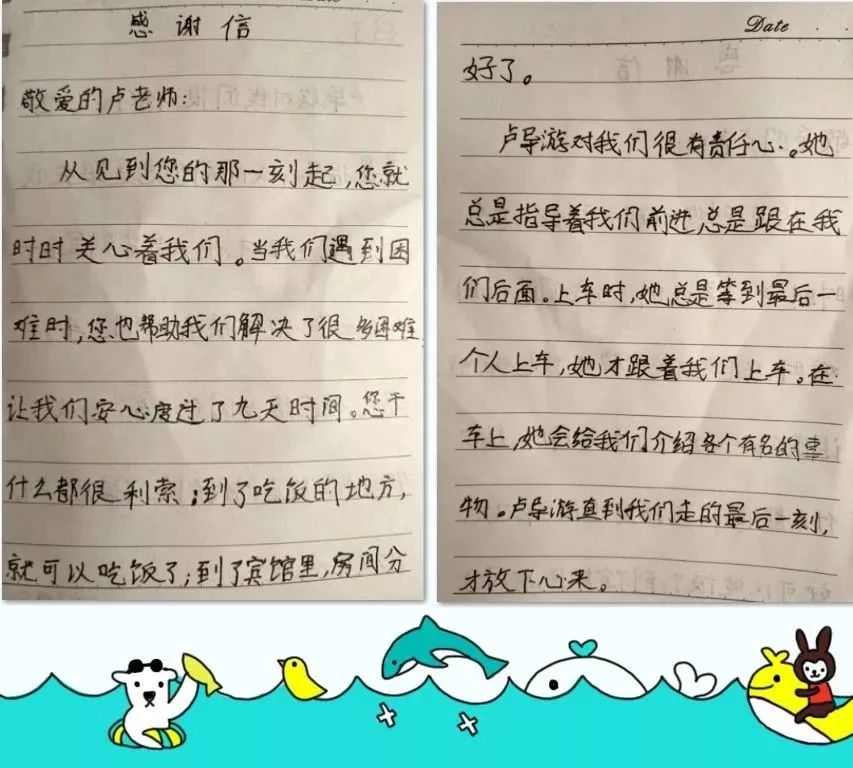 感谢信
敬爱的卢老师:
从见到您的那一刻起,您就
时时关心着我们。当我们遇到困
难时,您也帮助我们解决了很多困难
让我们安心度过了九天时间。您干
什么都很利索;到了吃饭的地方,
就可以吃饭了;到了宾馆里,房间分
Date
好了。
卢导游对我们很有责任心。她
总是指导着我们前进总是跟在我
们后面。上车时,她总是等到最后一
个人上车,她才跟着我们上车。在
车上,她会给我们介绍各个有名的事
物。卢导游直到我们走的最后一刻,
才放下心来。